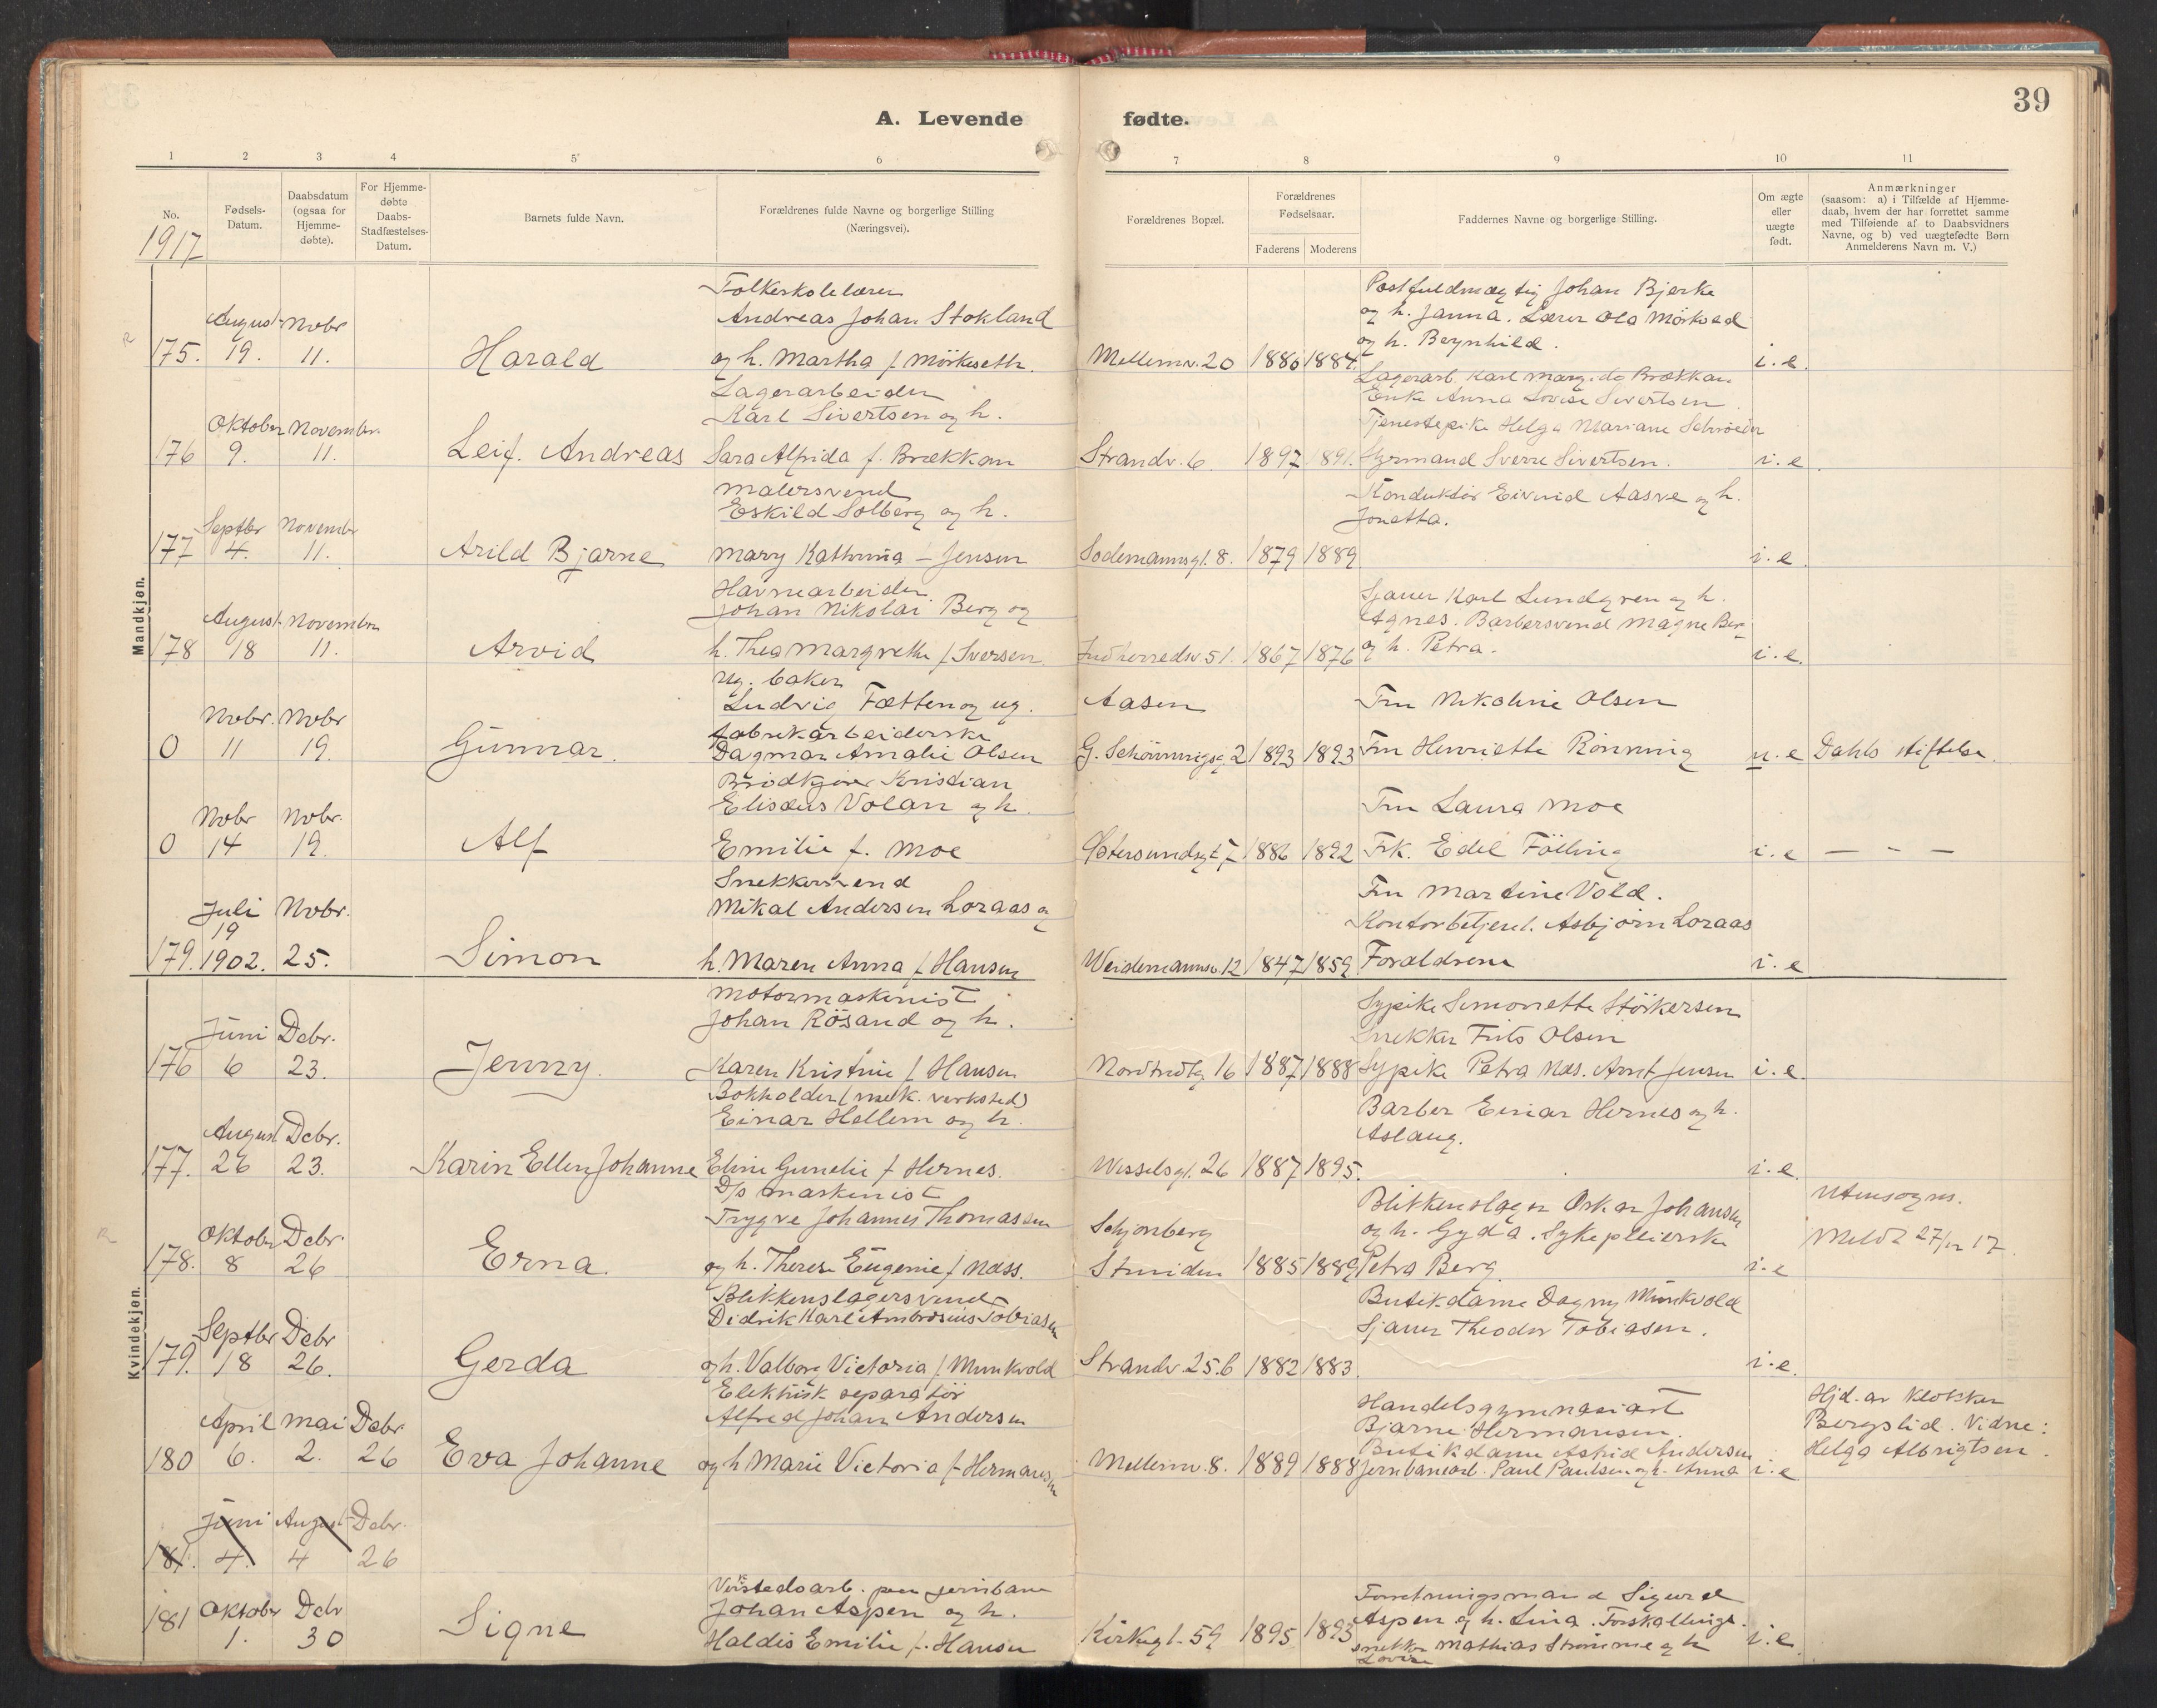 39
A. Levende fødte.
1 2 3 4 5 6 7 8 9 10 11
No.
1917
Fødsels-
Datum.
Daabsdatum
(ogsaa for
Hjemme-
døbte).
For Hjemme-
døbte
Daabs-
Stadfæstelses-
Datum.
Barnets fulde Navn.
Forældrenes fulde Navne og borgerlige Stilling
(Næringsvei).
Forældrenes Bopæl.
Forældrenes
Fødselsaar.
Faderens Moderens
Faddernes Navne og borgerlige Stilling.
Om ægte
eller
uægte
født.
Anmærkninger
(saasom: a) i Tilfælde af Hjemme-
daab, hvem der har forrettet samme
med Tilføiende af to Daabsvidners
Navne, og b) ved uægtefødte Børn
Anmelderens Navn m. V.)
Mandkjøn.
175. August 19. Nobr 11.
Harald
Folkeskolelærer
Andreas Johan Stokland
og h. Martha f. Mörkeseth.
Mellemv. 20 1886 1884.
Postfuldmægtig Johan Bjerke
og h. Janna. Lærer Ola Mörkved
og h. Brynhild.
i.e.
176 Oktober 9. November 11.
Leif. Andreas
Lagerarbeider
Karl Sivertsen og h.
Sara Alfrida f. Brækkan
Strandv. 6. 1897 1891.
Lagerarb. Karl Brækkan
Enke Anna Lovise Sivertsen
Tjenestepike Helga Mariane Schröeder
Styrmand Sverre Sivertsen.
i.e.
177 Septbr 4. November 11.
Arild Bjarne
Malersvend
Eskild Solberg og h.
Mary Kathrina – Jensen
Sodemannsgt. 8. 1879 1889
Konduktör Eivind Aasve og h.
Jonetta.
i.e.
178 August 18 November 11.
Arvid
Havnearbeider
Johan Nikolai Berg og
h. Thea Margrethe f. Iversen
Indherredsv. 51. 1867 1876
Sjauer Karl Lundgren og h.
Agnes. Barbersvend Magne Ber-
og h. Petra.
i.e.
0 Nobr. 11 Nobr 19.
Gunnar.
Ug. baker
Ludvig Fætten og ug.
fabrikarbeiderske
Dagmar Amalie Olsen
Aasen
G. Schönningsg. 2 1893 1893
Fru Nikoline Olsen
Fru Henriette Rönning
u.e Dahls stiftelse.
0 Nobr 14 Nobr. 19.
Alf
Brödkjörer Kristian
Elisæus Volan og h.
Emilie f. Moe
Östersundsgt 7 1886 1892
Fru Laura Moe
Frk. Edel Fölling
i.e — " —
179. Juli 19 1902. Nobr. 25.
Simon
Snekkersvend
Mikal Andersen Loraas og
h. Maren Anna f. Hansen
Weidemannsv. 12 1847 1859
Fru Martine Vold.
Kontorbetjent. Asbjörn Loraas
Forældrene
i.e
Kvindekjøn.
176 Juni 6 Debr. 23.
Jenny.
Motormaskinist
Johan Rösand og h.
Karen Kristine f. Hansen
16 1887 1888
Sypike Simonette Störkersen
Snekker Frits Olsen
Sypike Petra Næs. Arnt Jensen
i.e.
177. August 26 Debr. 23.
Karin Ellen Johanne
Bokholder (mek. verksted)
Einar Hellem og h.
Eline Gunelie f Hernes.
Wesselsgt. 26 1887 1895.
Barber Einar Hernes og h.
Aslaug.
i.e.
178. Oktober 8 Debr. 26
Erna.
D/s maskinist
Trygve Johannes Thomassen
og h. Therese Eugenie f Næss.
Schjonberg
Strinden 1885 1889
Blikkenslager Oskar Johansen
og h. Gyda. Sykepleierske
Petra Berg
i.e
Utensogns.
Meldt 27/12 17.
179. Septbr 18 Debr 26.
Gerda
Blikkenslagersvend
Didrik Karl Ambrosius Tobiasen
og h. Valborg Victoria f Munkvold
Strandv. 25.b 1882 1883.
Butikdame Dagny Munkvold
Sjauer Theodor Tobiasen.
i.e.
180 April 6. Mai 2. Debr 26
Eva Johanne
Elektrisk separatör
Alfred Johan Andersen
og h Marie Victoria f. Hermansen
Mellemv. 8. 1889 1888
Handelsgymnasiast
Bjarne Hermansen.
Butikdame Astrid Andersen
Jernbanearb. Paul Paulsen og h. Anna
i.e
Hjd. av klokker
Bergslid. Vidne:
Helga Albrigtsen.
181. Juni 4. August 4 Debr. 26
181 Oktobr 1. Debr 30
Signe
Verkstedsarb. paa jernbane
Johan Aspen og h.
Haldis Emilie f. Hansen
Kirkegt. 59 1895 1893
Forretningsmand Sigurd
Aspen og h. Lina. Forskallings-
snekker Mathias Strömme og h
Lovise
i.e.